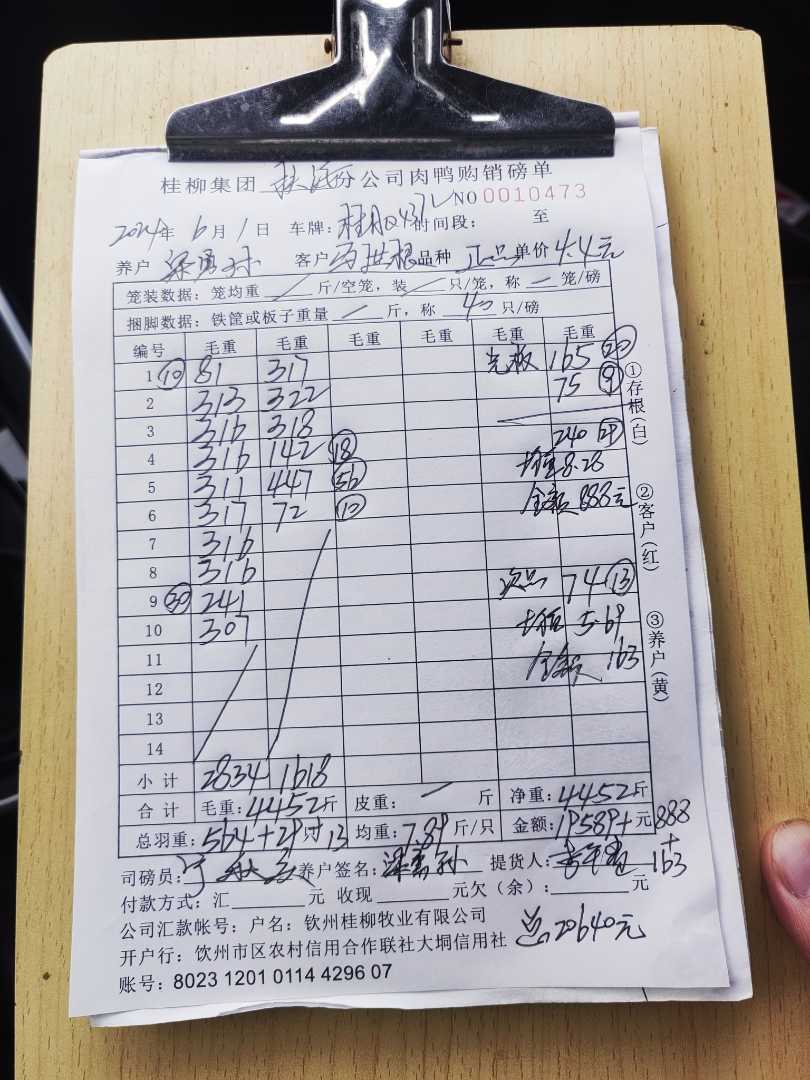 桂柳集团 分公司肉鸭购销磅单
NO 0010473
2024年 6月 1日 车牌: 时间段: 至
养户 客户 品种 正品 单价 4.4元
笼装数据: 笼均重 / 斤/空笼, 装 / 只/笼, 称 一 笼/磅
捆脚数据: 铁筐或板子重量 一 斤, 称 40 只/磅
编号 毛重 毛重 毛重 毛重 毛重 毛重
1 ⑩ 81 317 光板 165 ⑳
2 313 322 75 ⑨
3 316 318
4 316 142 ⑱ 240 ㉙
5 311 447 56 均重 8.28
6 317 72 ⑩ 金额 888元
7 316
8 316
9 ㉚ 241 次品 74 ⑬
10 307 均重 5.69
11 金额 163
12
13
14
小计 2834 1618
合计 毛重: 4452斤 皮重: 一 斤 净重: 4452斤
总羽重: 564+29+13 均重: 7.89 斤/只 金额: 19589+元 888
+
163
司磅员: 养户签名: 提货人:
付款方式: 汇 元 收现 元欠(余): 元
公司汇款帐号: 户名: 钦州桂柳牧业有限公司
总20640元
开户行: 钦州市区农村信用合作联社大垌信用社
账号: 8023 1201 0114 4296 07
①存根(白)
②客户(红)
③养户(黄)